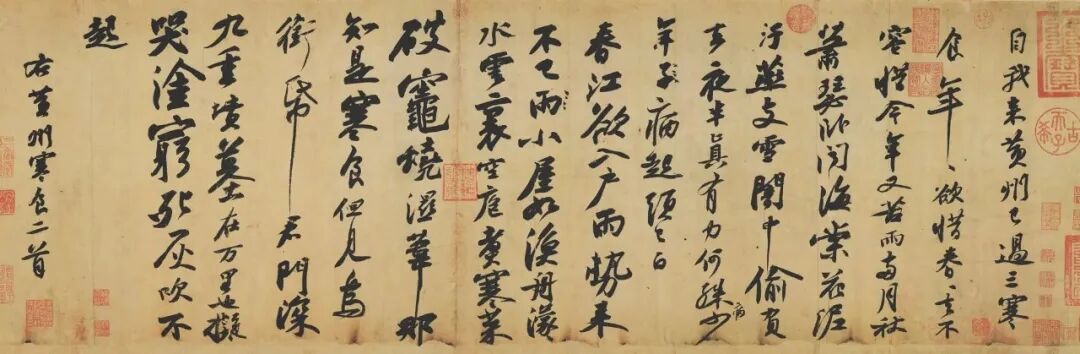 自我来黃州已過三寒
食年〻欲惜春〻去不
容惜今年又苦雨兩月秋
蕭瑟卧聞海棠花泥
汙燕支雪闇中偷負
去夜半真有力何殊少病
年子病起頭已白
春江欲入戶雨勢来
不已雨小屋如漁舟濛〻
水雲裏空庖煮寒菜
破竈燒溼葦那
知是寒食但見烏
銜帋君門深
九重墳墓在万里也擬
哭塗窮死灰吹不
起
右黃州寒食二首
古希天子